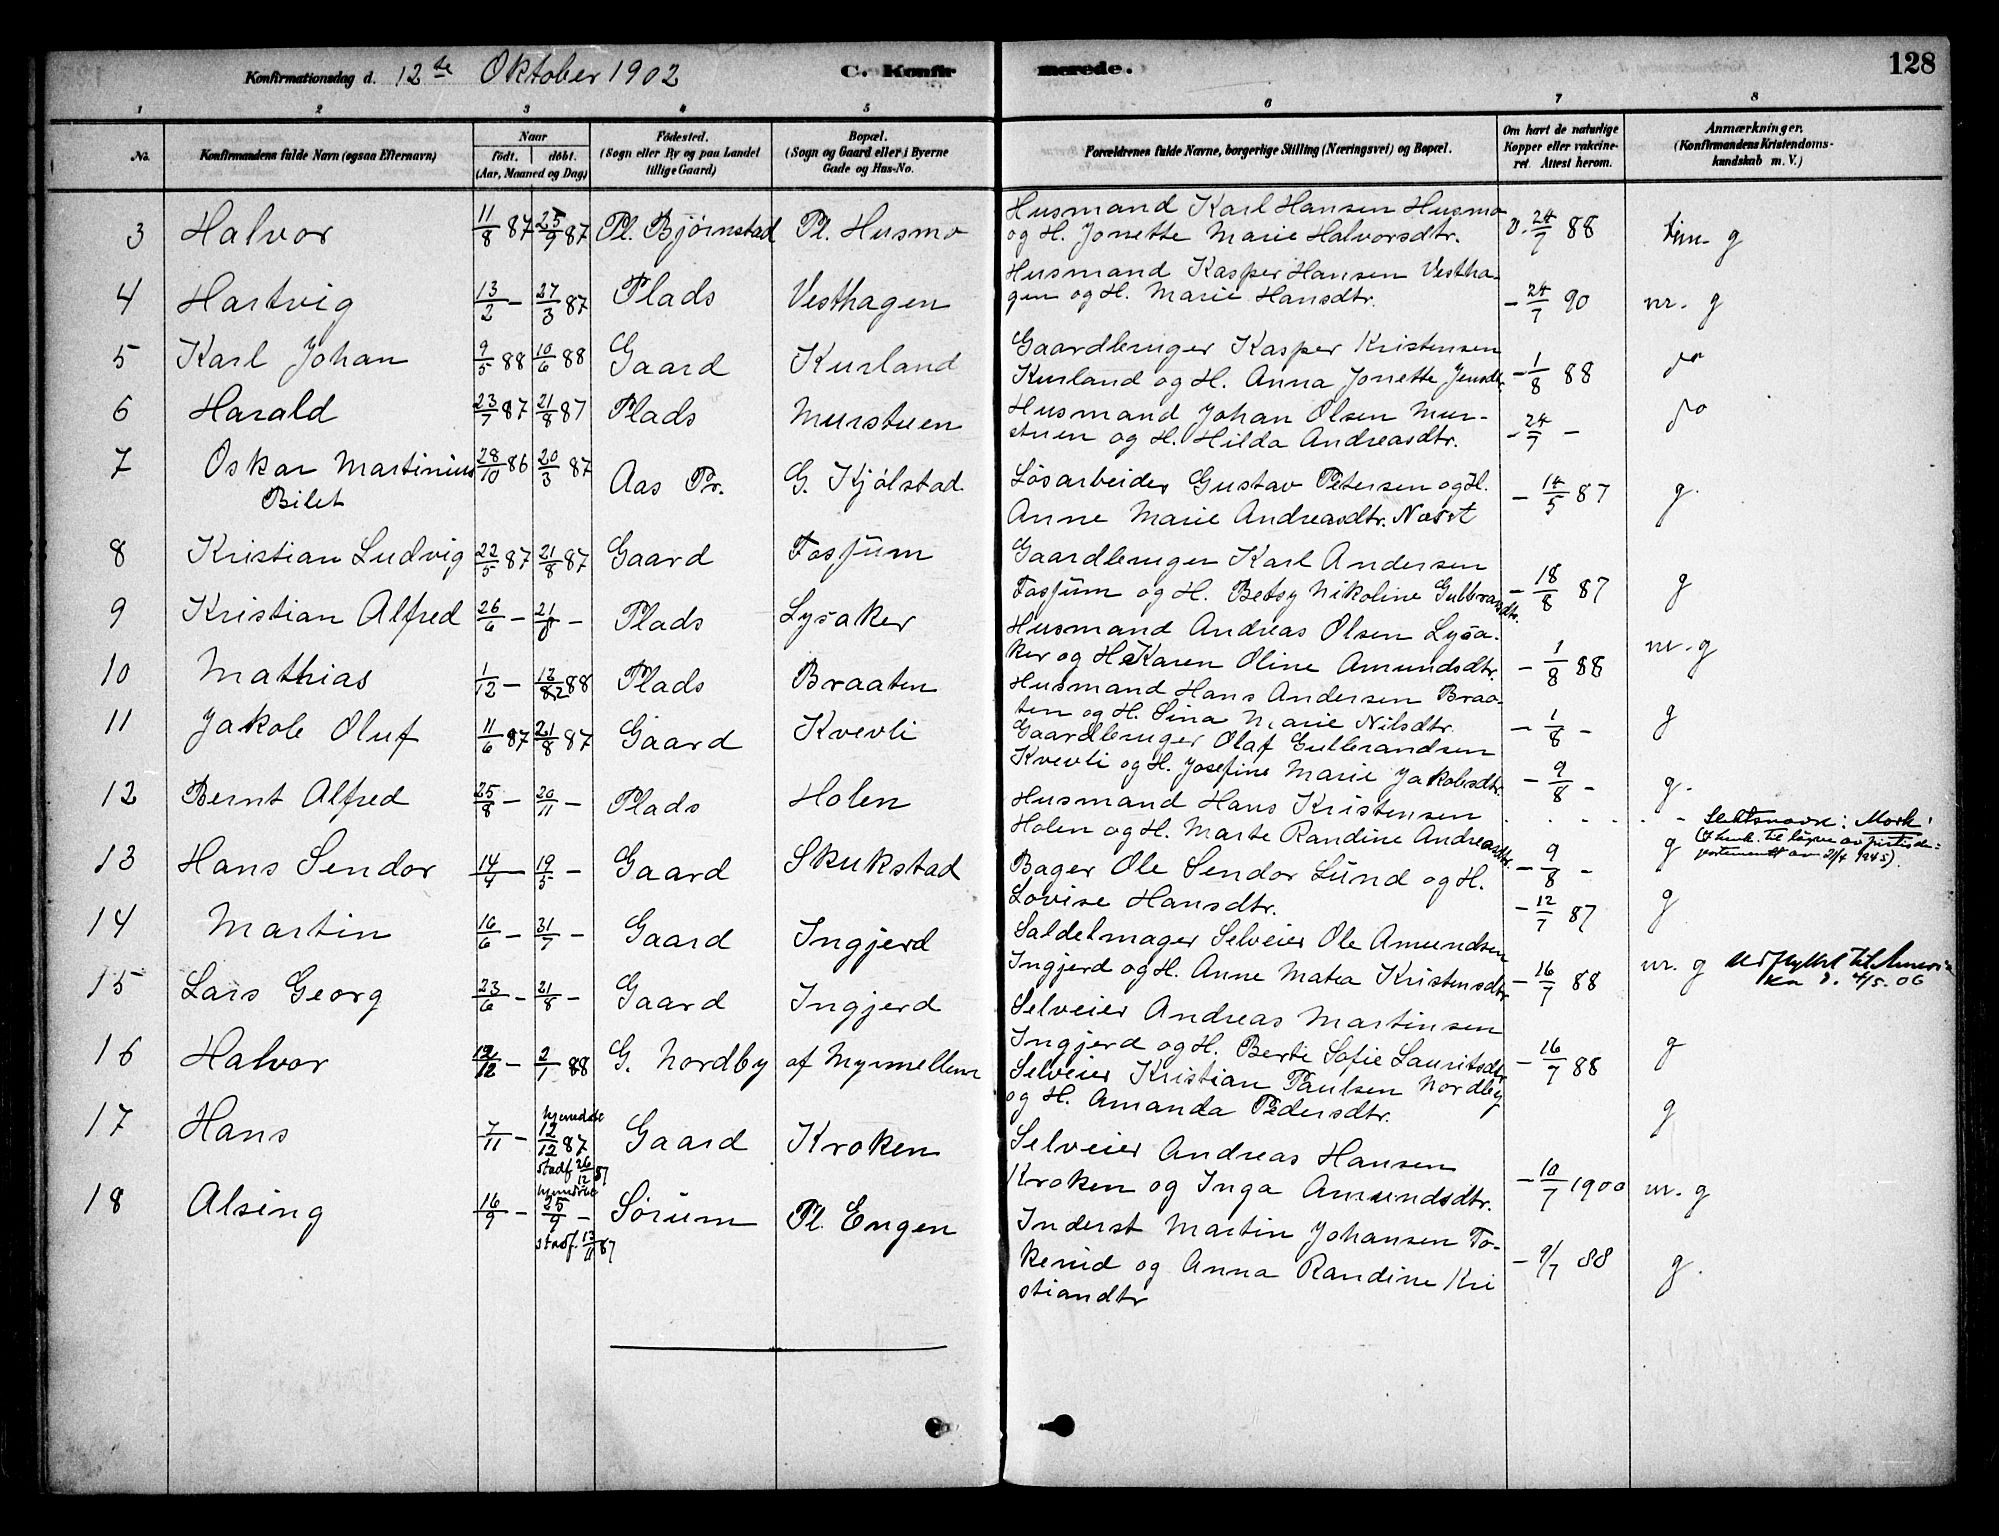 Konfirmationsdag d. 12te Oktober 1902 C. Konfirmerede. 128
1 2 3 4 5 6 7 8
No. Konfirmandens fulde Navn (ogsaa Efternavn) Naar født. døbt. (Aar, Maaned og Dag) Fødested. (Sogn eller By og paa Landet tillige Gaard) Bopæl. (Sogn og Gaard eller i Byerne Gade og Hus-No. Forældrenes fulde Navne, borgerlige Stilling (Næringsvei) og Bopæl. Om havt de naturlige Kopper eller vakcineret. Attest herom. Anmærkninger. (Konfirmandens Kristendomskundskab m. V.)
3 Halvor 11/8 87 25/9 87 Pl. Bjørnstad Pl. Husmo
Husmand Karl Hansen Husmo
og H. Jonette Marie Halvorsdtr. v. 24/7 88 g
4 Hartvig 13/2 - 27/3 87 Plads Vesthagen
Husmand Kasper Hansen Vestha-
gen og H. Marie Hansdtr. - 24/7 90 nr. g
5 Karl Johan 9/5 88 10/6 88 Gaard Kurland
Gaardbruger Kasper Kristensen
Kurland og H. Anna Jonette Jensdtr. - 1/8 88 do
6 Harald 23/7 87 21/8 87 Plads Murstuen
Husmand Johan Olsen Mur-
stuen og H. Hilda Andreasdtr. - 24/7 - do
7 Oskar Martinius 28/10 86 20/3 87 Aas Pr. G. Kjølstad
Bilet
Løsarbeider Gustav Petersen og H.
Anne Marie Andreasdtr. Næset - 14/5 87 g.
8 Kristian Ludvig 22/5 87 21/8 87 Gaard Fosjum
Gaardbruger Karl Andersen
Fosjum og H. Betsy Nikoline Gulbrandsdtr. - 18/8 87 g
9 Kristian Alfred 26/6 - 21/8 - Plads Lysaker
Husmand Andreas Olsen Lysa-
ker og H. Karen Oline Amundsdtr. - 1/8 88 nr. g
10 Mathias 1/12 - 12/2 88 Plads Braaten
Husmand Hans Andersen Braa-
ten og H. Sina Marie Nilsdtr. - 1/8 - g
11 Jakob Oluf 11/6 87 21/8 87 Gaard Kvevli
Gaardbruger Olaf Gulbrandsen
Kvevli og H. Josefine Marie Jakobsdtr. - 9/8 - g.
12 Bernt Alfred 25/8 - 20/11 - Plads Holen
Husmand Hans Kristensen
Holen og H. Marte Randine Andreasdtr. - 9/8 - g Slektsnavn: Mork!
til av
21/4 1945).
13 Hans Sendor 14/4 - 19/5 - Gaard Skukstad
Bager Ole Sendor Lund og H.
Lovise Hansdtr. - 12/7 87 g
14 Martin 16/6 - 31/7 - Gaard Ingjerd
Saldelmager Selveier Ole Amundsen
Ingjerd og H. Anne Matea Kristensdtr. - 16/7 88 nr. g Udflyttet til Ameri-
ka d. 4/5. 06
15 Lars Georg 23/6 - 21/8 - Gaard Ingjerd
Selveier Andreas Martinsen
Ingjerd og H. Berte Sofie Lauritsdtr. - 16/7 88 g
16 Halvor 12/12 - 2/1 88 G. Nordby af Myrmellem
Selveier Kristian Paulsen Nordby
og H. Amanda Pedersdtr. g
17 Hans 7/11 - hjemdøbt 12/12 87 stadf. 26/12 87 Gaard Kroken
Selveier Andreas Hansen
Kroken og Inga Amundsdtr. - 10/7 1900 nr. g
18 Alsing 16/9 - hjemdøbt 25/9 - stadf. 13/11 87 Sørum Pl. Engen
Inderst Martin Johansen To-
kerud og Anna Randine Kri
stiandtr - 9/7 88 g.